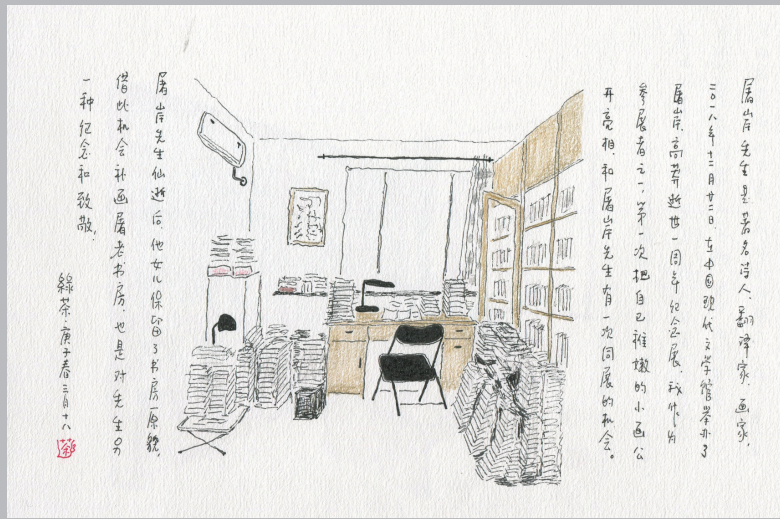 屠岸先生是著名诗人、翻译家、画家,
二〇一八年十二月廿二日,在中国现代文学馆举办了
屠岸、高莽逝世一周年纪念展,我作为
参展者之一,第一次把自己稚嫩的小画公
开亮相,和屠岸先生有一次同展的机会。
屠岸先生仙逝后,他女儿保留了书房原貌,
借此机会补画屠老书房,也是对先生另
一种纪念和致敬。
綠茶·庚子春三月十八